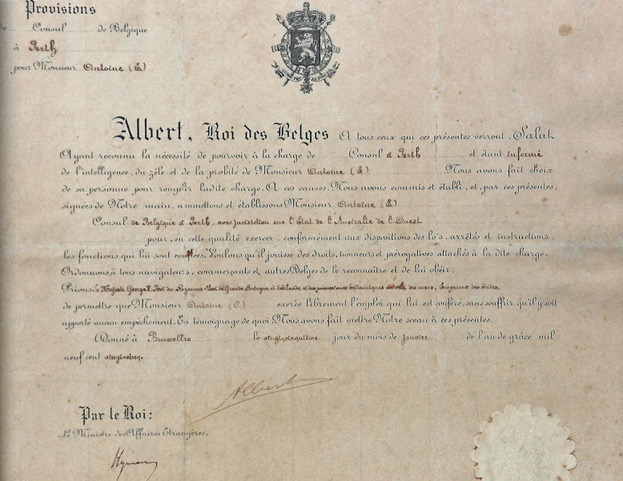 Provisions
Consul de Belgique
à Perth
pour Monsieur Antoine (E)
Albert, Roi des Belges A tous ceux qui ces présentes verront, Salut.
Ayant reconnu la nécessité de pourvoir à la charge de Consul à Perth et étant informé
de l'intelligence, du zèle et de la probité de Monsieur Antoine (E) Nous avons fait choix
de sa personne pour remplir ladite charge. A ces causes, Nous avons commis et établi, et, par ces présentes,
signées de Notre main, commettons et établissons Monsieur Antoine (E)
Consul de Belgique à Perth, avec juridiction sur l'Etat de l'Australie de l'Ouest
pour, en cette qualité exercer, conformément aux dispositions des lois, arrêtés et instructions,
les fonctions qui lui sont confiées. Voulons qu'il jouisse des droits, honneurs et prérogatives attachés à la dite charge.
Ordonnons à tous navigateurs, commerçants et autres Belges de le reconnaître et de lui obéir.
Prions, Sa Majesté George V, Roi du Royaume Uni de Grande Bretagne et d'Irlande et des possessions britanniques au delà des mers, Empereur des Indes,
de permettre que Monsieur Antoine (E.) exerce librement l'emploi qui lui est conféré, sans souffrir qu'il y soit
apporté aucun empêchement. En témoignage de quoi, Nous avons fait mettre Notre sceau à ces présentes.
Donné à Bruxelles le jour du mois de janvier de l'an de grâce mil
neuf cent vingt-cinq.
Albert
Par le Roi:
Le Ministre des Affaires Etrangères,